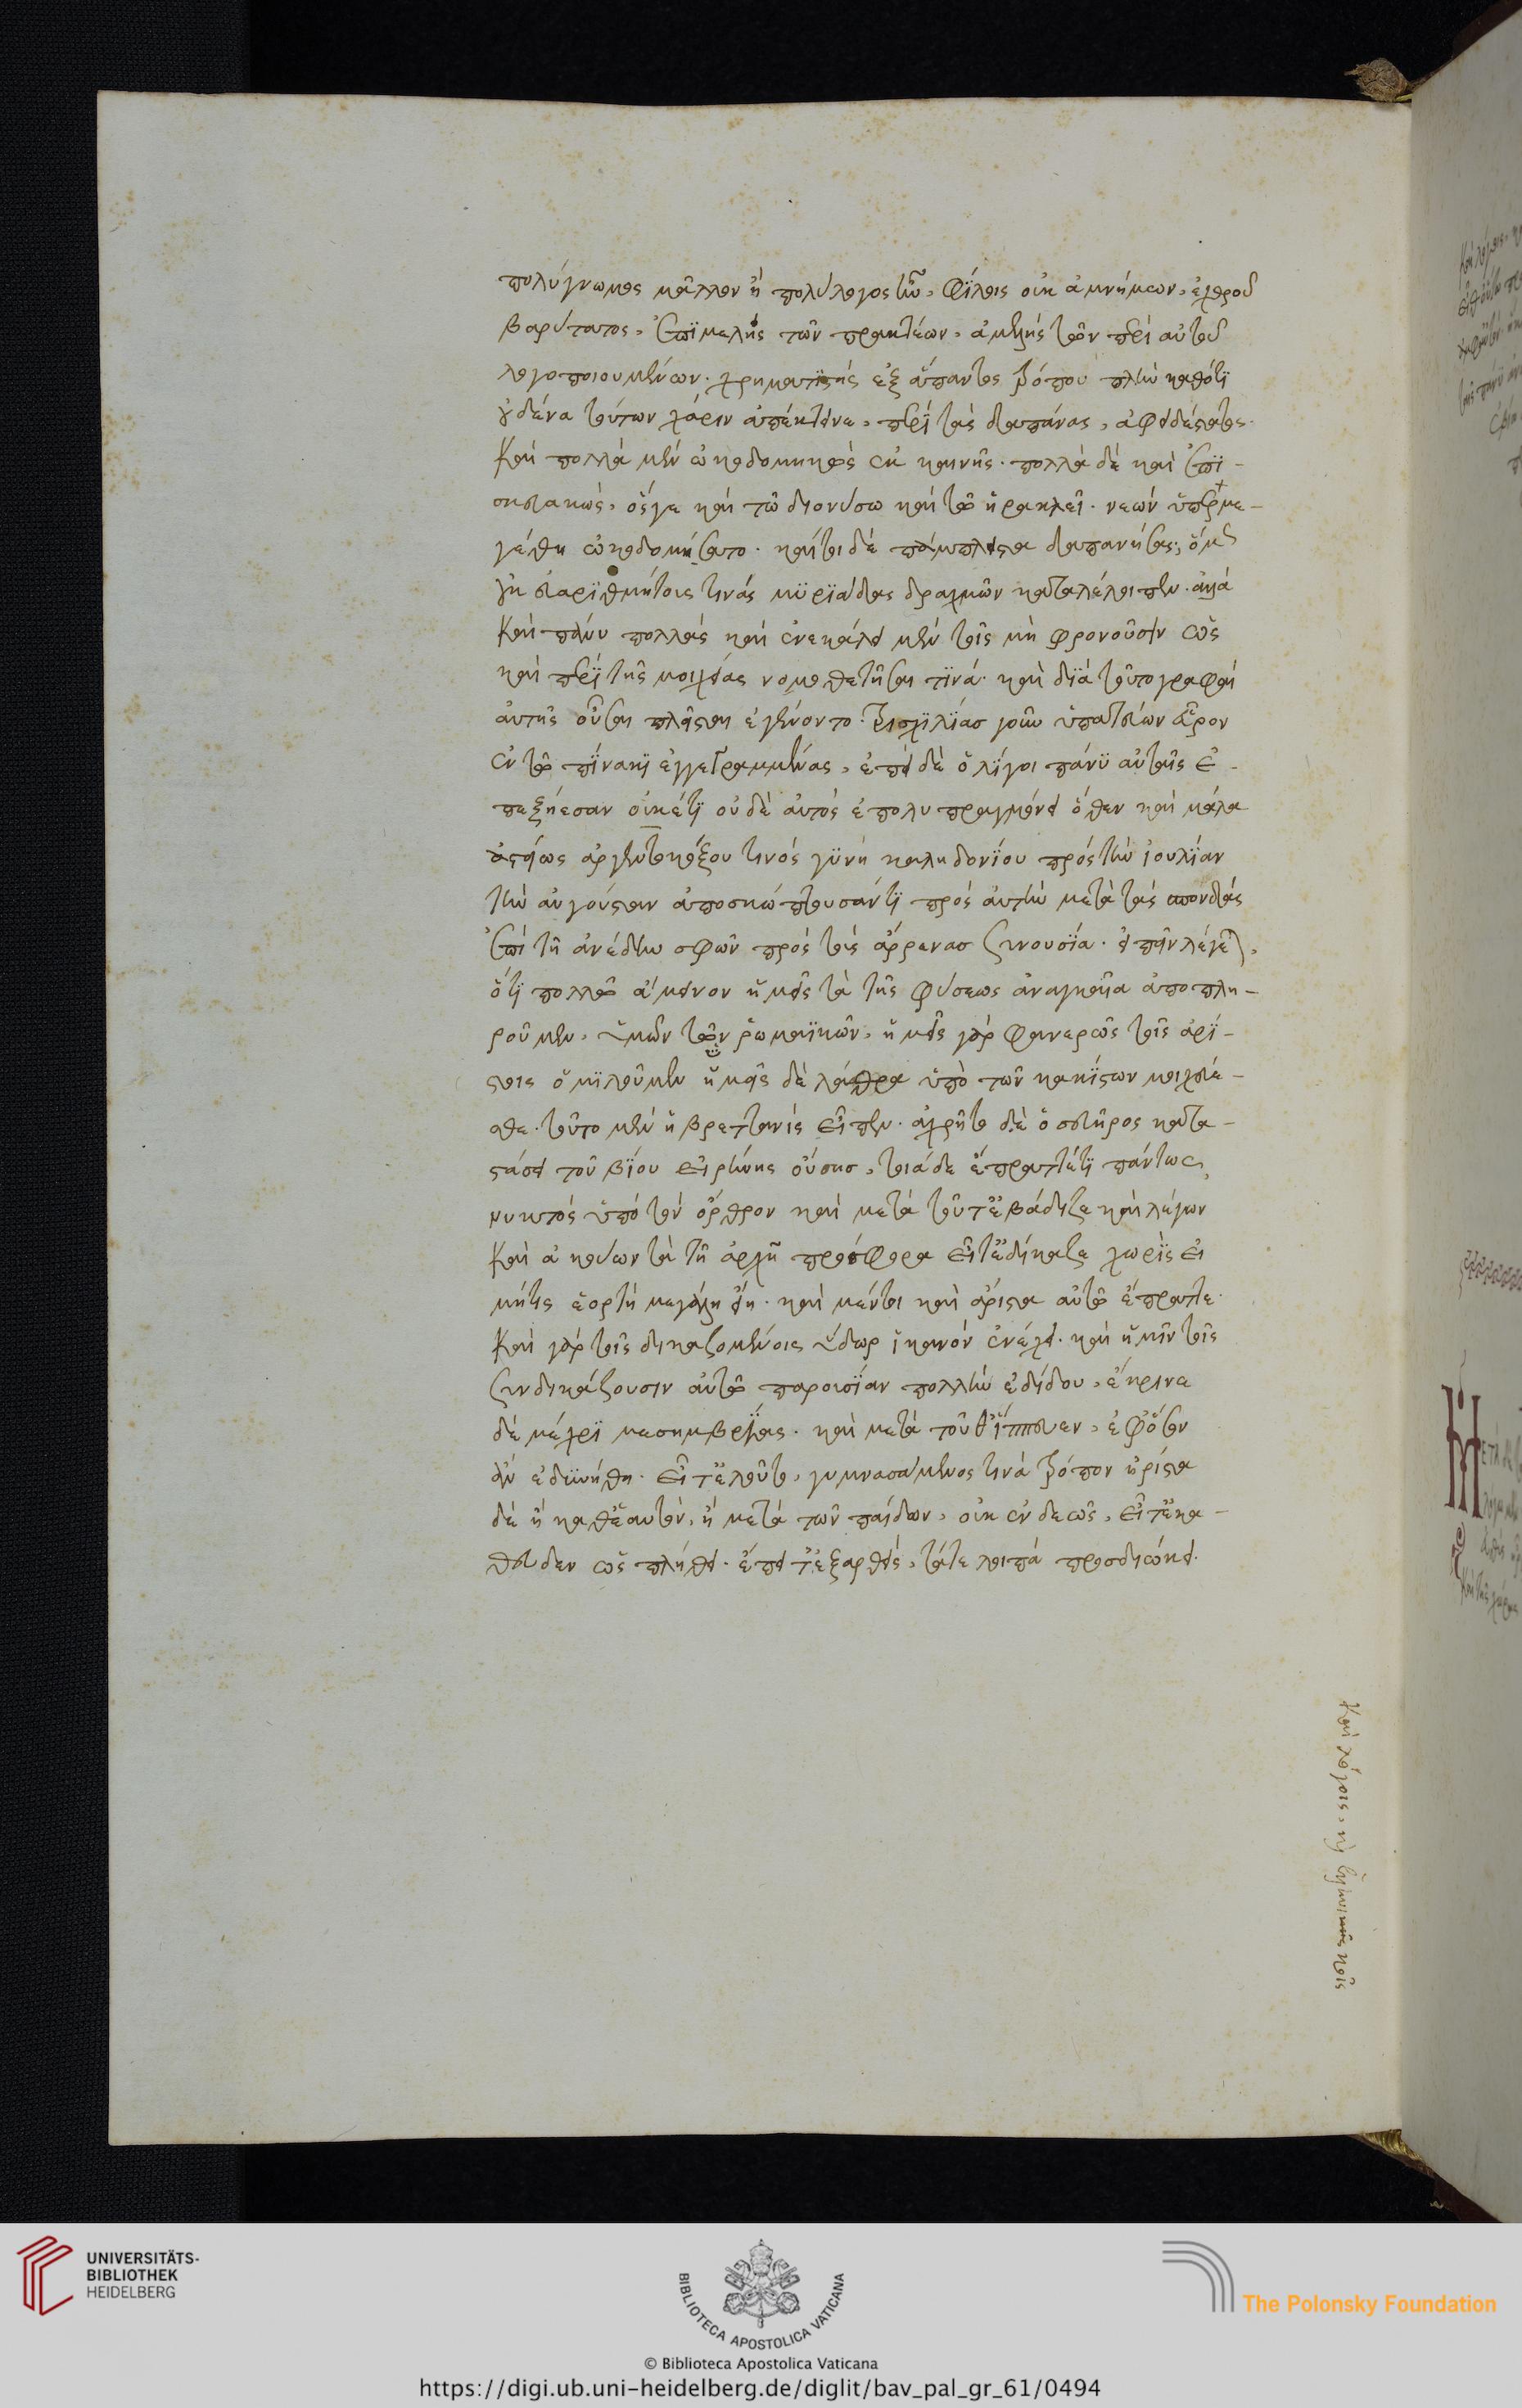 πολύγνωμος μᾶλλον ἢ πολύλογος ἦν. φίλοις οὐκ ἀμνήμων. ἐχθροῖς
βαρύτατος. ἐπϊμελὴς τῶν πρακτέων. ἀμελὴς τῶν περὶ αὐτοῦ
λογοποιουμένων. χρηματϊστὴς ἐξ ἅπαντος τρόπου πλὴν καθότϊ
οὐδένα τούτων χάριν ἀπέκτεινε. περῒ τὰς δαπάνας. ἀφειδέστατος.
καὶ πολλὰ μὲν ὠκοδομηκὼς ἐκ καινῆς. πολλὰ δὲ καὶ ἐπϊ-
σκευακώς. ὅς γε καὶ τῶ διονύσω καὶ τῶ ἡρακλεῖ. νεὼν ὑπερμε-
γέθη ὠκοδομήσατο. καί τοι δὲ πάμπλειστα δαπανήσας, ὅμως
οὐκ εὐαρϊθμήτους τινὰς μϋρϊάδας δραχμῶν καταλέλοιπεν. ἀλλὰ
καὶ πάνυ πολλάς καὶ ἐνεκάλει μὲν τοῖς μὴ φρονοῦσϊν ὡς
καὶ περῒ τῆς μοιχείας νομοθετῆσαι τϊνά. καὶ δϊὰ τοῦτο γραφαὶ
αὐτῆς οὖσαι πλεῖσται ἐγένοντο. τρισχϊλϊάσ γοῦν ὑπατεύων εὗρον
ἐν τῶ πϊνακϊ ἐγγεγραμμένας. ἐπεὶ δὲ ὀλϊγοι πάνϋ αὐταῖς ἐ-
πεξήεσαν οὐκέτϊ οὐδὲ αὐτὸς ἐπολυπραγμόνει ὅθεν καὶ μάλα
ἀστείως ἀργεντοκόξου τινὸς γϋνὴ καληδονϊου πρὸς τὴν ἰουλϊαν
τὴν αὐγούσταν ἀποσκώπτουσάν τϊ πρὸς αὐτὴν μετὰ τὰς σπονδὰς
ἐπὶ τῇ ἀνέδην σφῶν πρὸς τοὺς ἄρρενασ συνουσϊα. εἰπεῖν λέγεται.
ὅτϊ πολλῶ ἄμεινον ἡμεῖς τὰ τῆς φύσεως ἀναγκαῖα ἀποπλη-
ροῦμεν. ὑμῶν τῶν ῥωμαϊκῶν. ἡμεῖς γὰρ φανερῶς τοῖς ἀρϊ-
στοις ὁμϊλοῦμεν ὑμεῖς δὲ λάθρα ὑπὸ τῶν κακϊστων μοιχεύε-
σθε. τοῦτο μὲν ἡ βρεττανὶς εἶπεν. ἐχρῆτο δὲ ὁ σευῆρος κατα-
στάσει τοῦ βϊου εἰρήνης οὔσησ. τοιάδε ἔπραττέ τϊ πάντως
νυκτὸς ὑπὸ τὸν ὄρθρον καὶ μετὰ τοῦτ' ἐβάδιζε καὶ λέγων
καὶ ἀκούων τὰ τῇ ἀρχῇ πρόσφορα εἶτ' ἐδίκαζε χωρϊς εἰ
μήτις ἑορτὴ μεγάλη εἴη. καὶ μέντοι καὶ ἄριστα αὐτῶ ἔπραττε.
καὶ γὰρ τοῖς δικαζομένοις ὕδωρ ἱκανὸν ἐνέχει. καὶ ἡμῖν τοῖς
συνδικάζουσιν αὐτῶ παρρησϊαν πολλὴν ἐδίδου. ἔκρινε
δὲ μέχρϊ μεσημβρϊας. καὶ μετὰ τοῦθ' ἵππευεν. ἐφ' ὅσον
ἂν ἐδϋνήθη. εἶτ' ἐλοῦτο. γυμνασάμενος τινὰ τρόπον ἠρίστα
δὲ ἢ καθ' ἑαυτόν. ἢ μετὰ τῶν παίδων. οὐκ ἐνδεῶς. εἶτ' ἐκα-
θευδεν ὡς πλήθει. ἔπειτ' ἐξαρθεὶς. τάτε λοιπὰ προσδιώκει.
καὶ λόγοις.
UNIVERSITÄTS-
BIBLIOTHEK
HEIDELBERG
BIBLIOTECA APOSTOLICA VATICANA
The Polonsky Foundation
© Biblioteca Apostolica Vaticana
https://digi.ub.uni-heidelberg.de/diglit/bav_pal_gr_61/0494